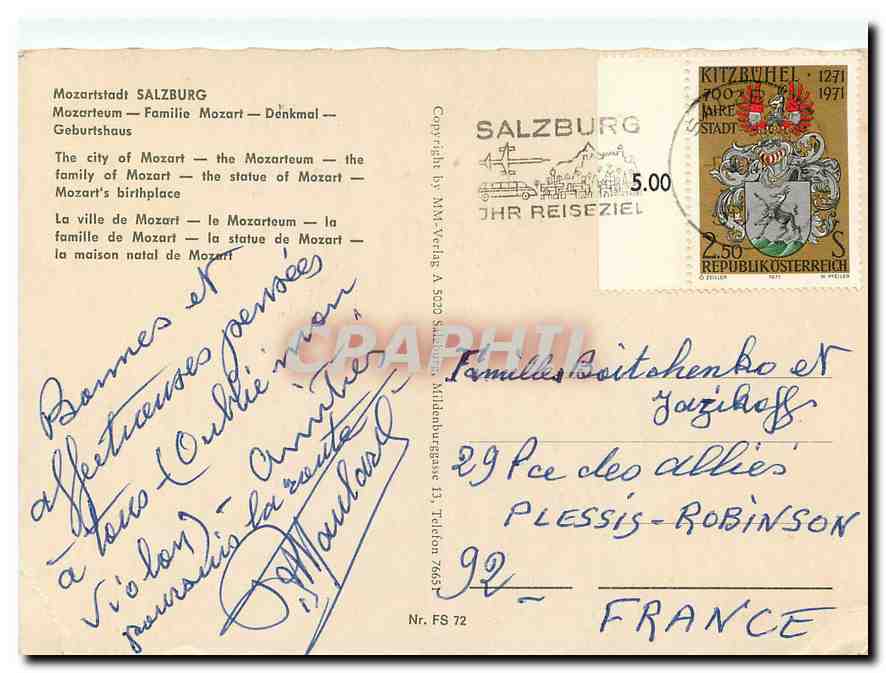 Mozartstadt SALZBURG
Mozarteum — Familie Mozart — Denkmal —
Geburtshaus
The city of Mozart — the Mozarteum — the
family of Mozart — the statue of Mozart —
Mozart's birthplace
La ville de Mozart — le Mozarteum — la
famille de Mozart — la statue de Mozart —
la maison natal de Mozart
Bonnes et
affectueuses pensées
à tous (Oublié mon
violon) - Amitiés
poursuis la route -
Copyright by MM-Verlag A 5020 Salzburg, Mildenburggasse 13, Telefon 76651
Nr. FS 72
SALZBURG
IHR REISEZIEL
5.00
KITZBÜHEL 1271
700 1971
JAHRE
STADT
2.50 S
REPUBLIK ÖSTERREICH
O. ZEILLER 1971 W. PFEILER
CPAPHIL
Familles Boitchenko et
Jazikoff
29 Pce des alliés
PLESSIS-ROBINSON
92-
FRANCE